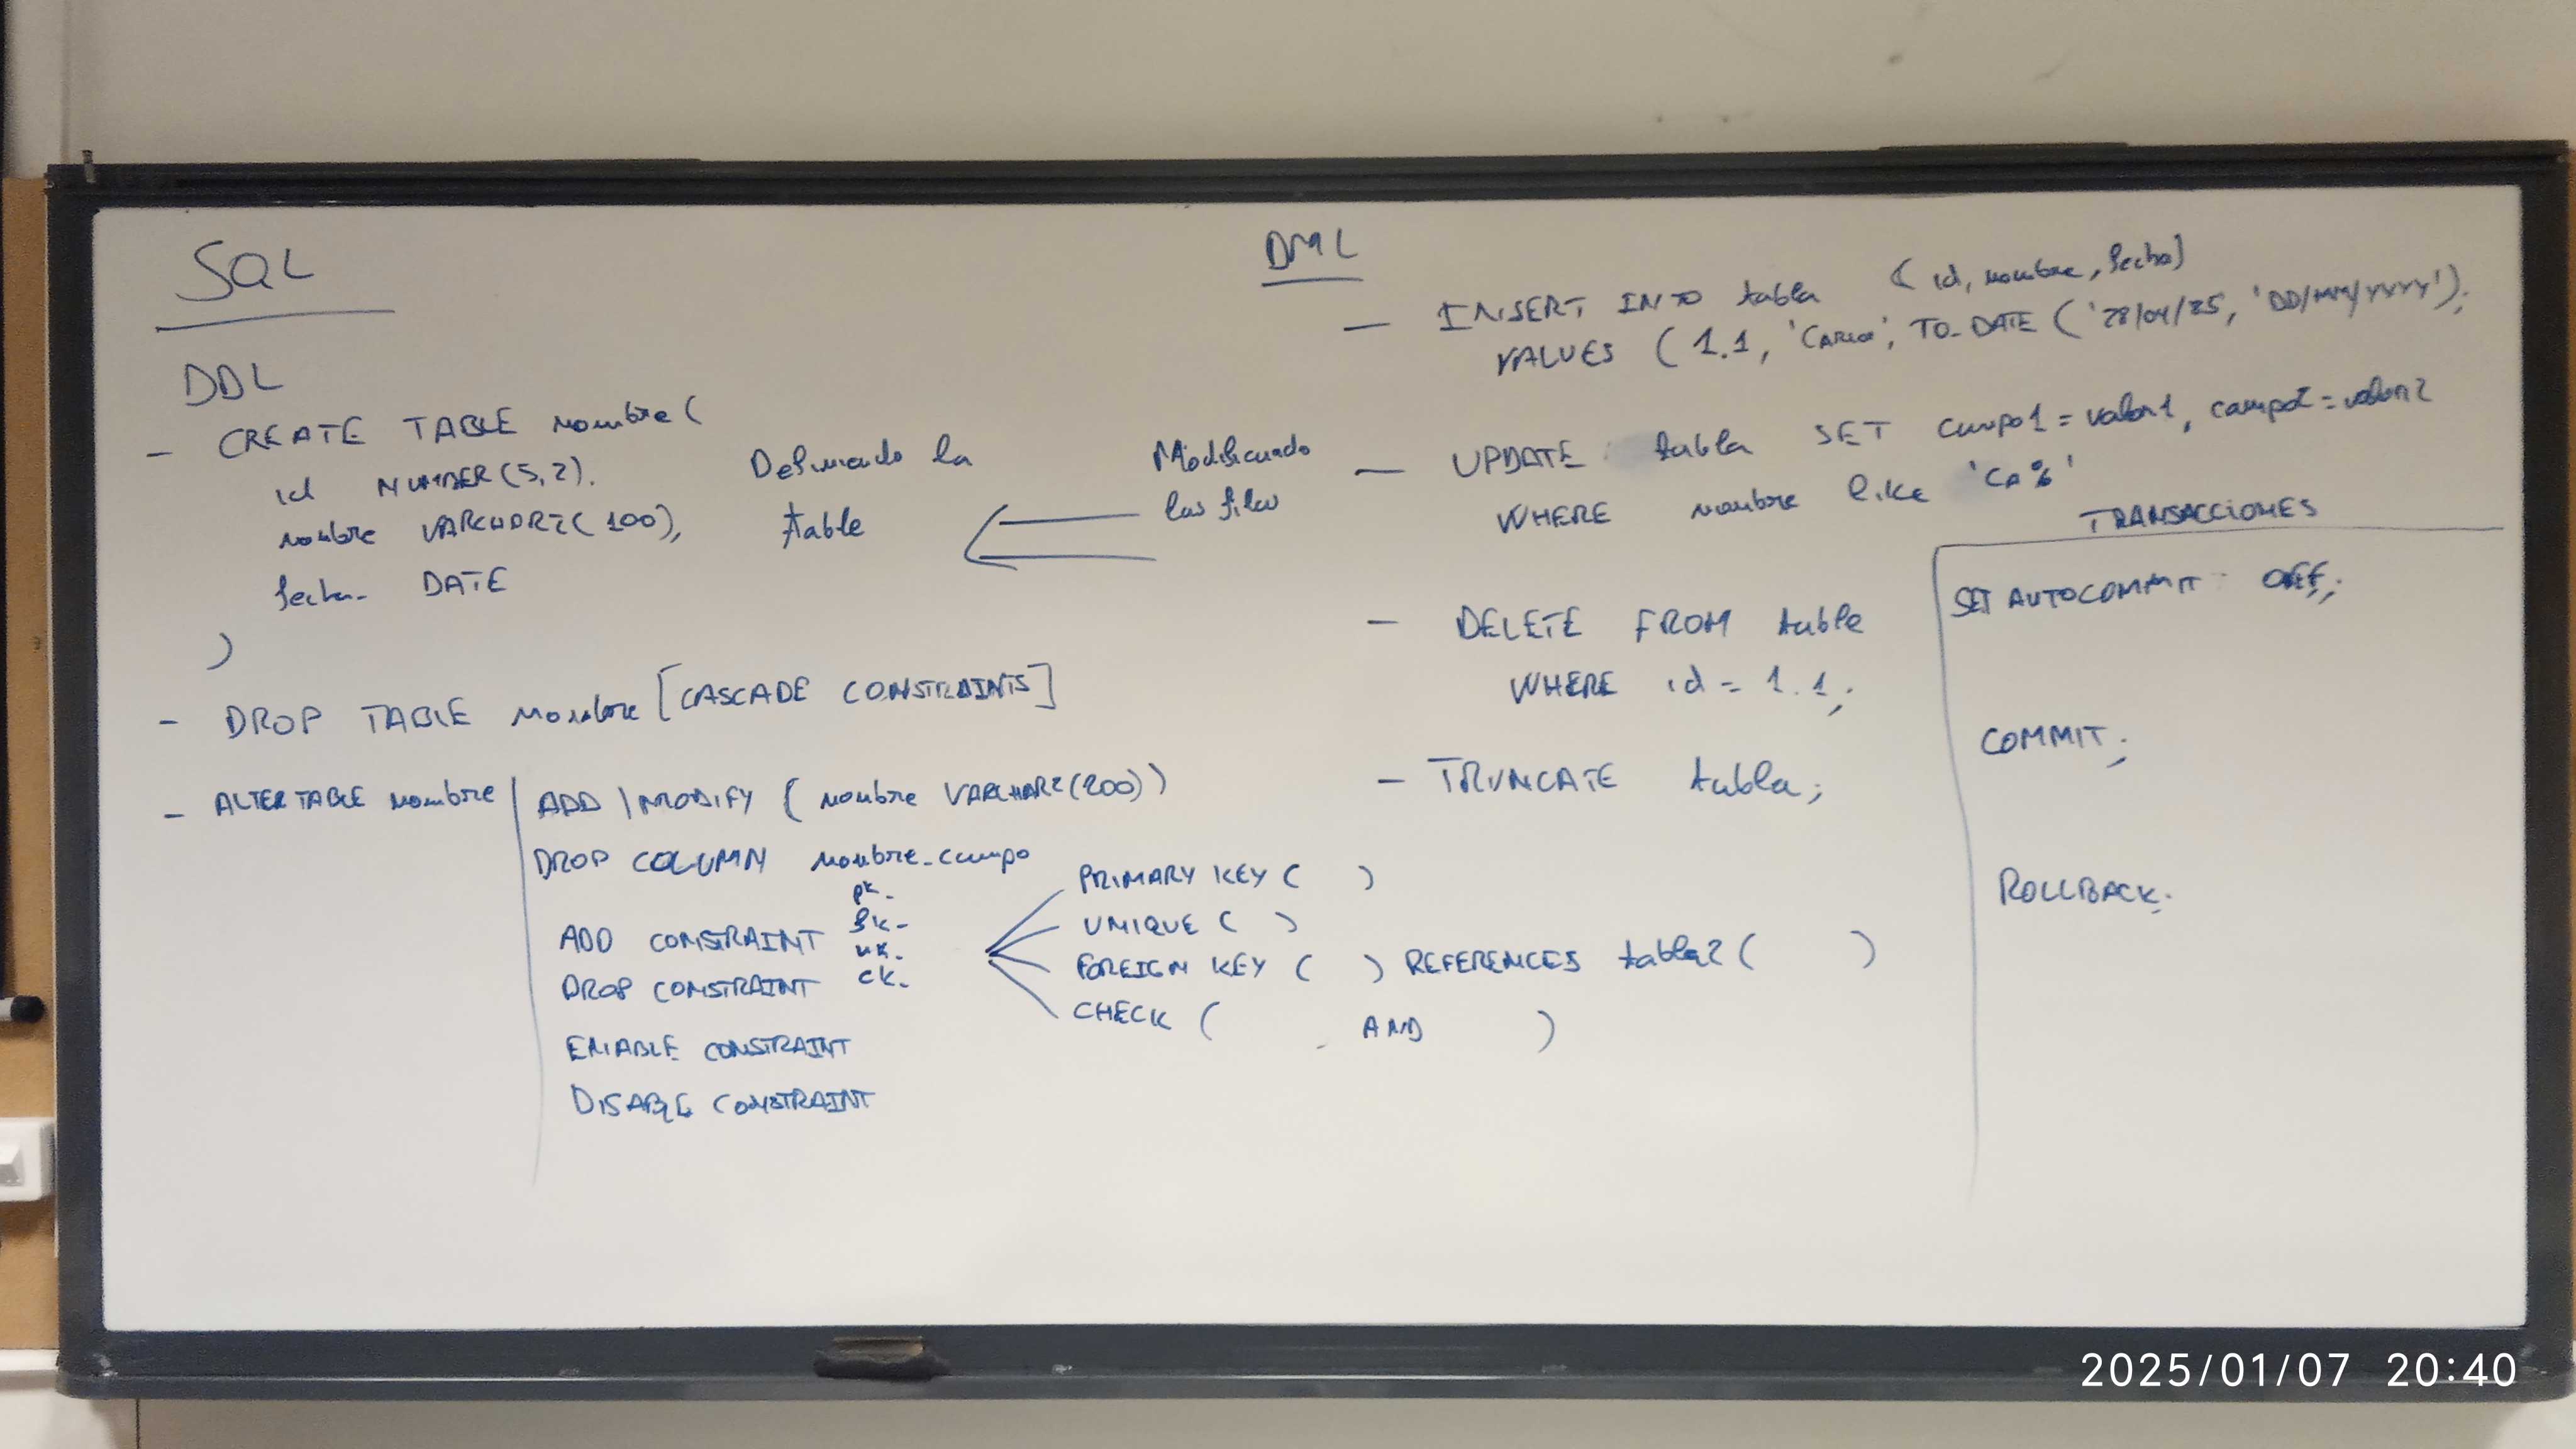 SQL
DDL
- CREATE TABLE nombre (
id NUMBER(5,2).
nombre VARCHAR2(100),
fecha DATE
)
Definiendo la
table
Modificando
las filas
- DROP TABLE nombre [CASCADE CONSTRAINTS]
- ALTER TABLE nombre
ADD | MODIFY ( nombre VARCHAR2(200))
DROP COLUMN nombre_campo
ADD CONSTRAINT
DROP CONSTRAINT
ENABLE CONSTRAINT
DISABLE CONSTRAINT
pk_
fk_
uk_
ck_
PRIMARY KEY ( )
UNIQUE ( )
FOREIGN KEY ( ) REFERENCES tabla2 ( )
CHECK ( AND )
DML
- INSERT INTO tabla ( id, nombre, fecha)
VALUES ( 1.1, 'Carlos', TO_DATE ( '28/04/25, 'DD/MM/YYYY');
- UPDATE tabla SET campo1 = valor1, campo2 = valor2
WHERE nombre like 'Ca%'
- DELETE FROM table
WHERE id = 1.1;
- TRUNCATE tabla;
TRANSACCIONES
SET AUTOCOMMIT OFF;
COMMIT;
ROLLBACK;
2025/01/07 20:40